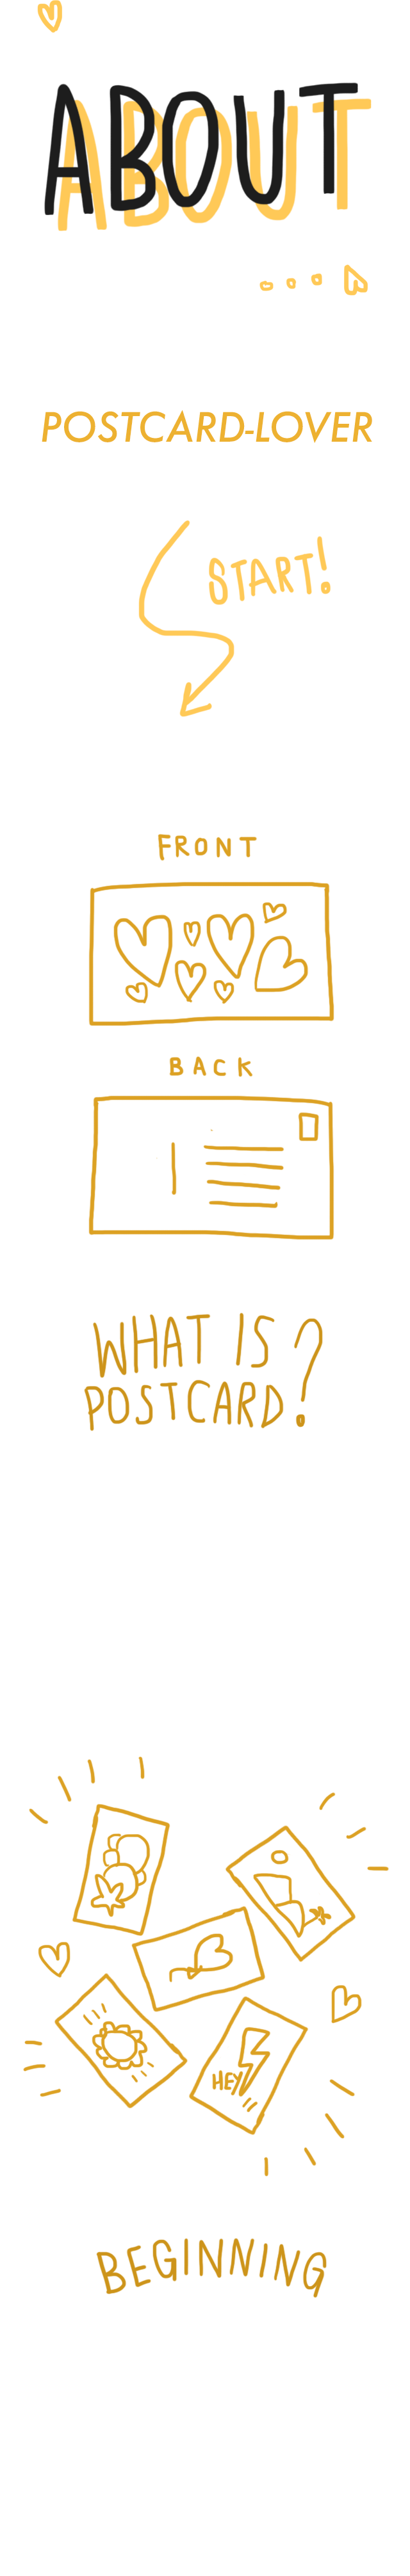 ABOUT
POSTCARD-LOVER
START!
FRONT
BACK
WHAT IS
POSTCARD?
HEY
BEGINNING